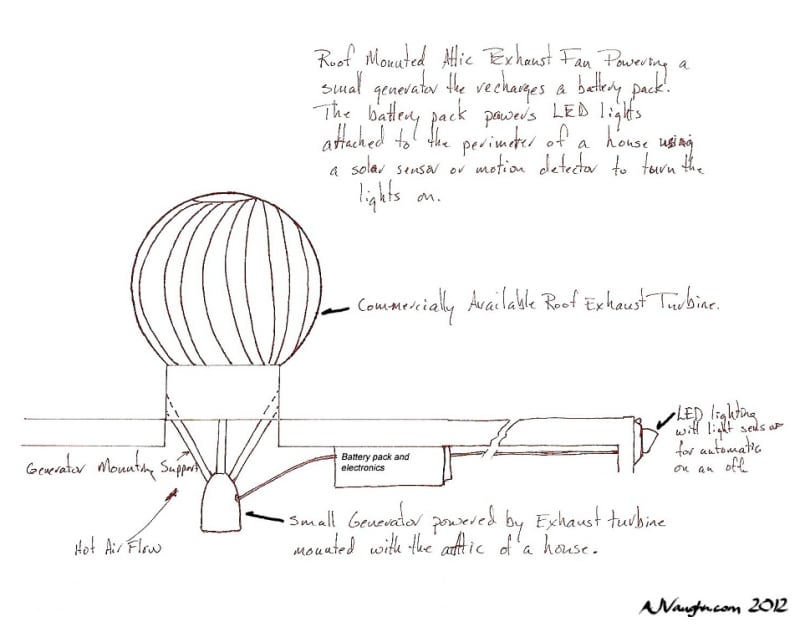 Roof Mounted Attic Exhaust Fan Powering a
small generator the recharges a battery pack.
The battery pack powers LED lights
attached to the perimeter of a house using
a solar sensor or motion detector to turn the
lights on.
Commercially Available Roof Exhaust Turbine.
LED lighting
will light sensor
for automatic
on an off
Battery pack and
electronics
Generator Mounting Support
Small Generator powered by Exhaust turbine
mounted with the attic of a house.
Hot Air Flow
AJVaughn.com 2012